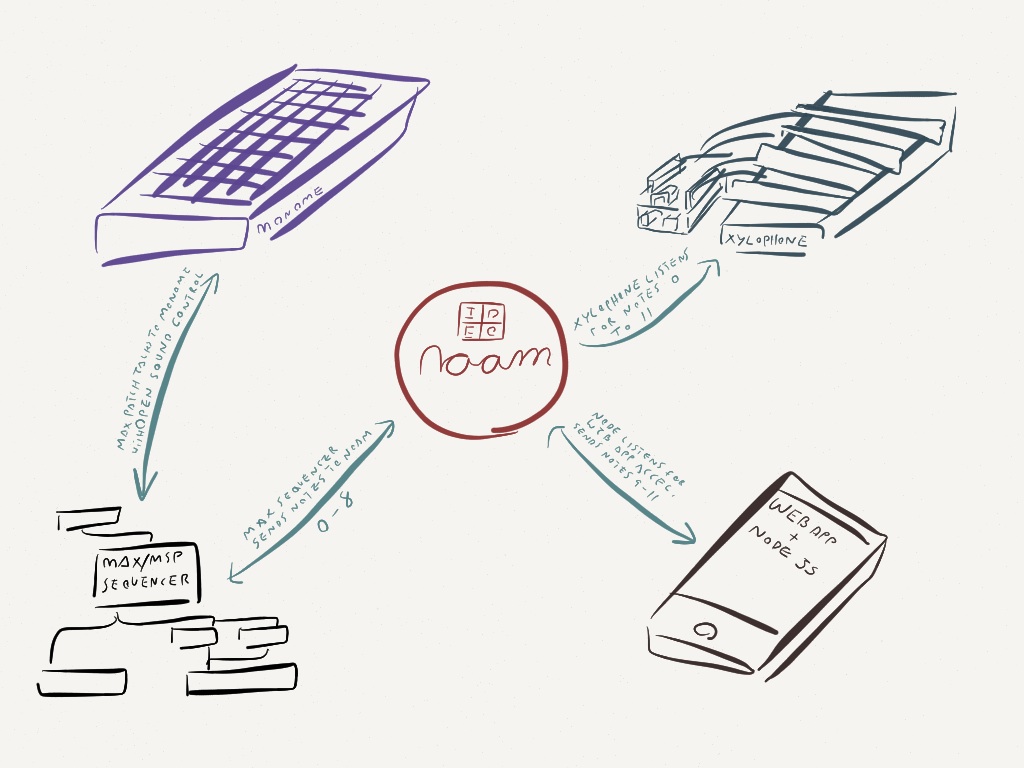 MONOME
MAX PATCH TALKS TO MONOME
viiHOPEN SOUND CONTROL
XYLOPHONE
XYLOPHONE LISTENS
FOR NOTES 0
TO 11
I D
E O
noam
MAX SEQUENCER
SENDS NOTES TO NOAM
0-8
NODE LISTENS FOR
WEB APP ACCEL.
SENDS NOTES 9-11
MAX/MSP
SEQUENCER
WEB APP
+
NODE JS